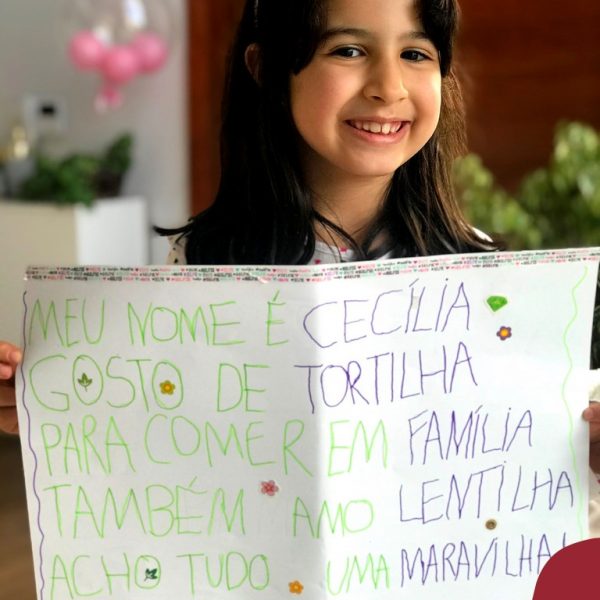 MEU NOME É CECÍLIA
GOSTO DE TORTILHA
PARA COMER EM FAMÍLIA
TAMBÉM AMO LENTILHA
ACHO TUDO UMA MARAVILHA!